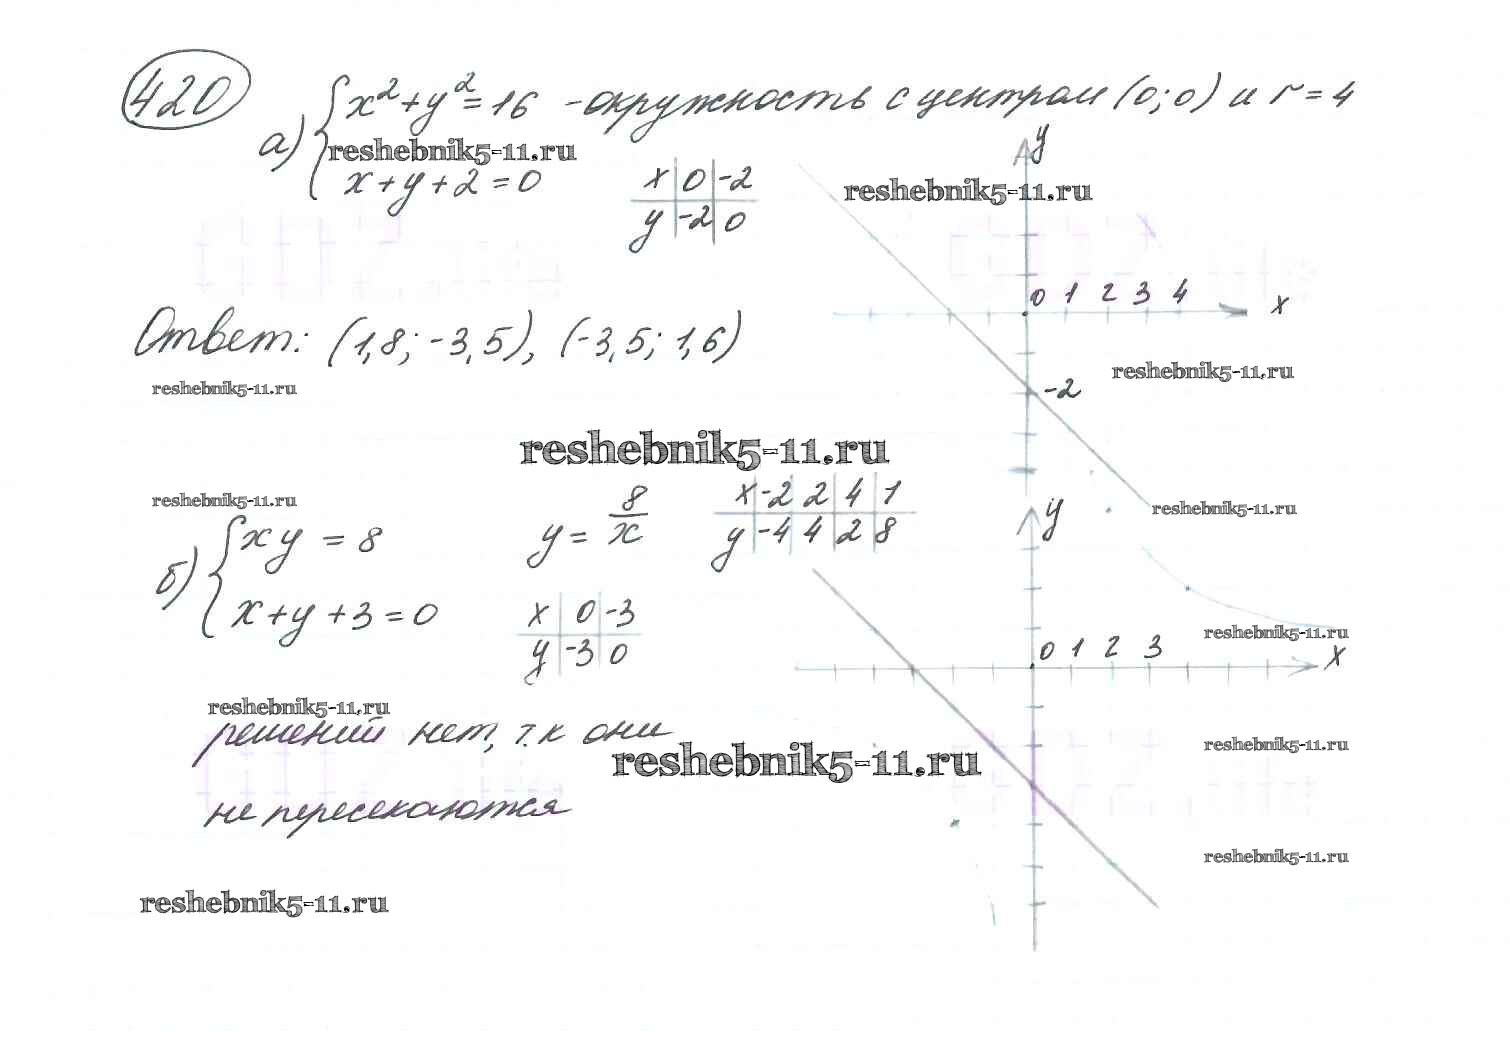 420
x² + y² = 16 - окружность с центром (0; 0) и r = 4
а)
reshebnik5-11.ru
x + y + 2 = 0
x 0 -2
y -2 0
y
reshebnik5-11.ru
0 1 2 3 4 x
-2
Ответ: (1,8; -3,5), (-3,5; 1,6)
reshebnik5-11.ru
reshebnik5-11.ru
reshebnik5-11.ru
reshebnik5-11.ru
reshebnik5-11.ru
б)
xy = 8
y = 8/x
x -2 2 4 1
y -4 4 2 8
x + y + 3 = 0
x 0 -3
y -3 0
y
reshebnik5-11.ru
0 1 2 3 x
reshebnik5-11.ru
решений нет, т.к они
reshebnik5-11.ru
reshebnik5-11.ru
не пересекаются
reshebnik5-11.ru
reshebnik5-11.ru